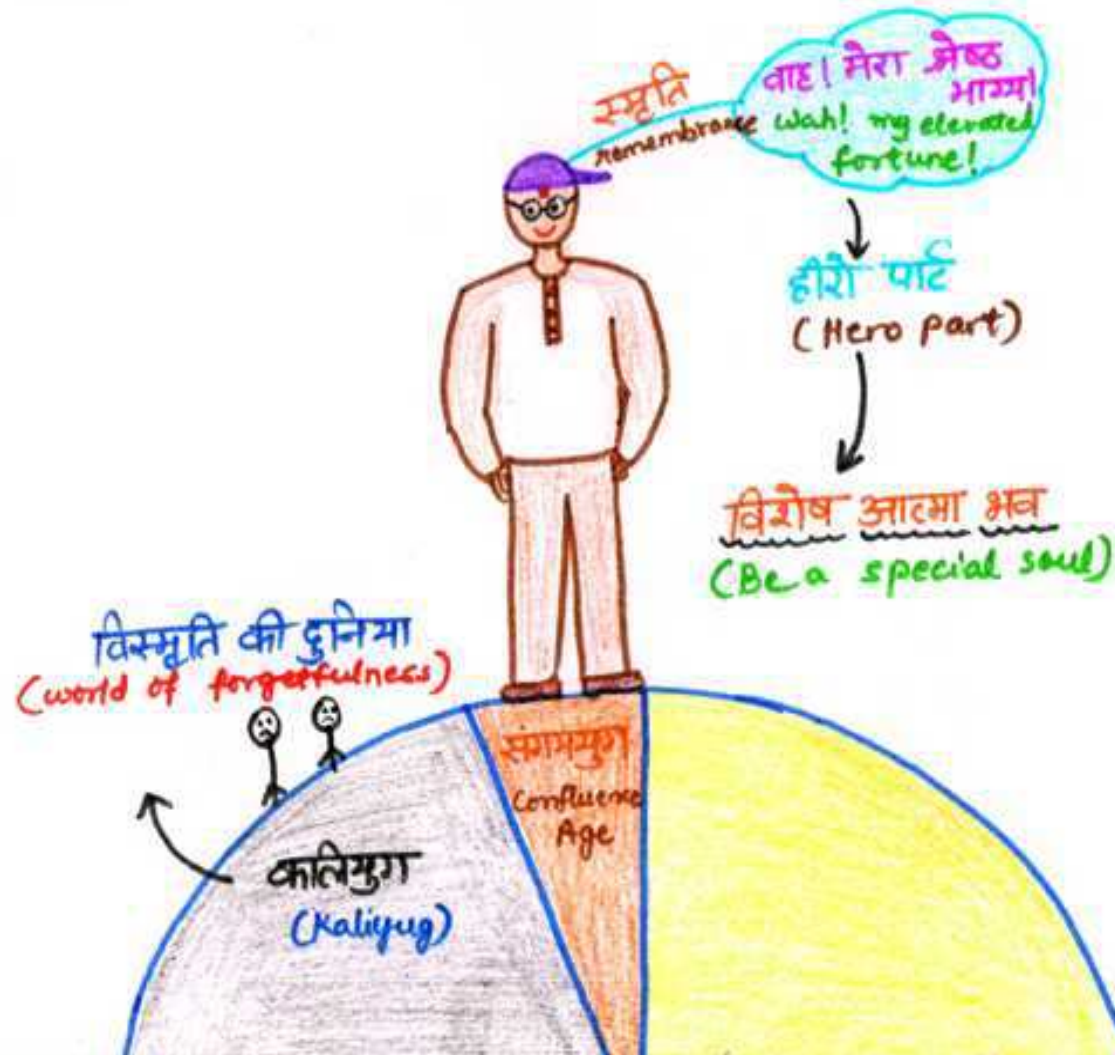 स्मृति
remembrance
वाह! मेरा श्रेष्ठ
भाग्य!
Wah! my elevated
fortune!
हीरो पार्ट
(Hero part)
विशेष आत्मा भव
(Be a special soul)
विस्मृति की दुनिया
(world of forgetfulness)
संगमयुग
Confluence
Age
कलियुग
(Kaliyug)